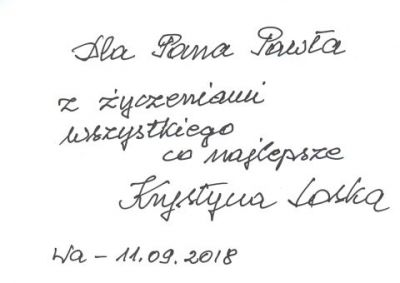 Dla Pana Pawła
z życzeniami
wszystkiego
co najlepsze
Krystyna Loska
Wa - 11.09.2018